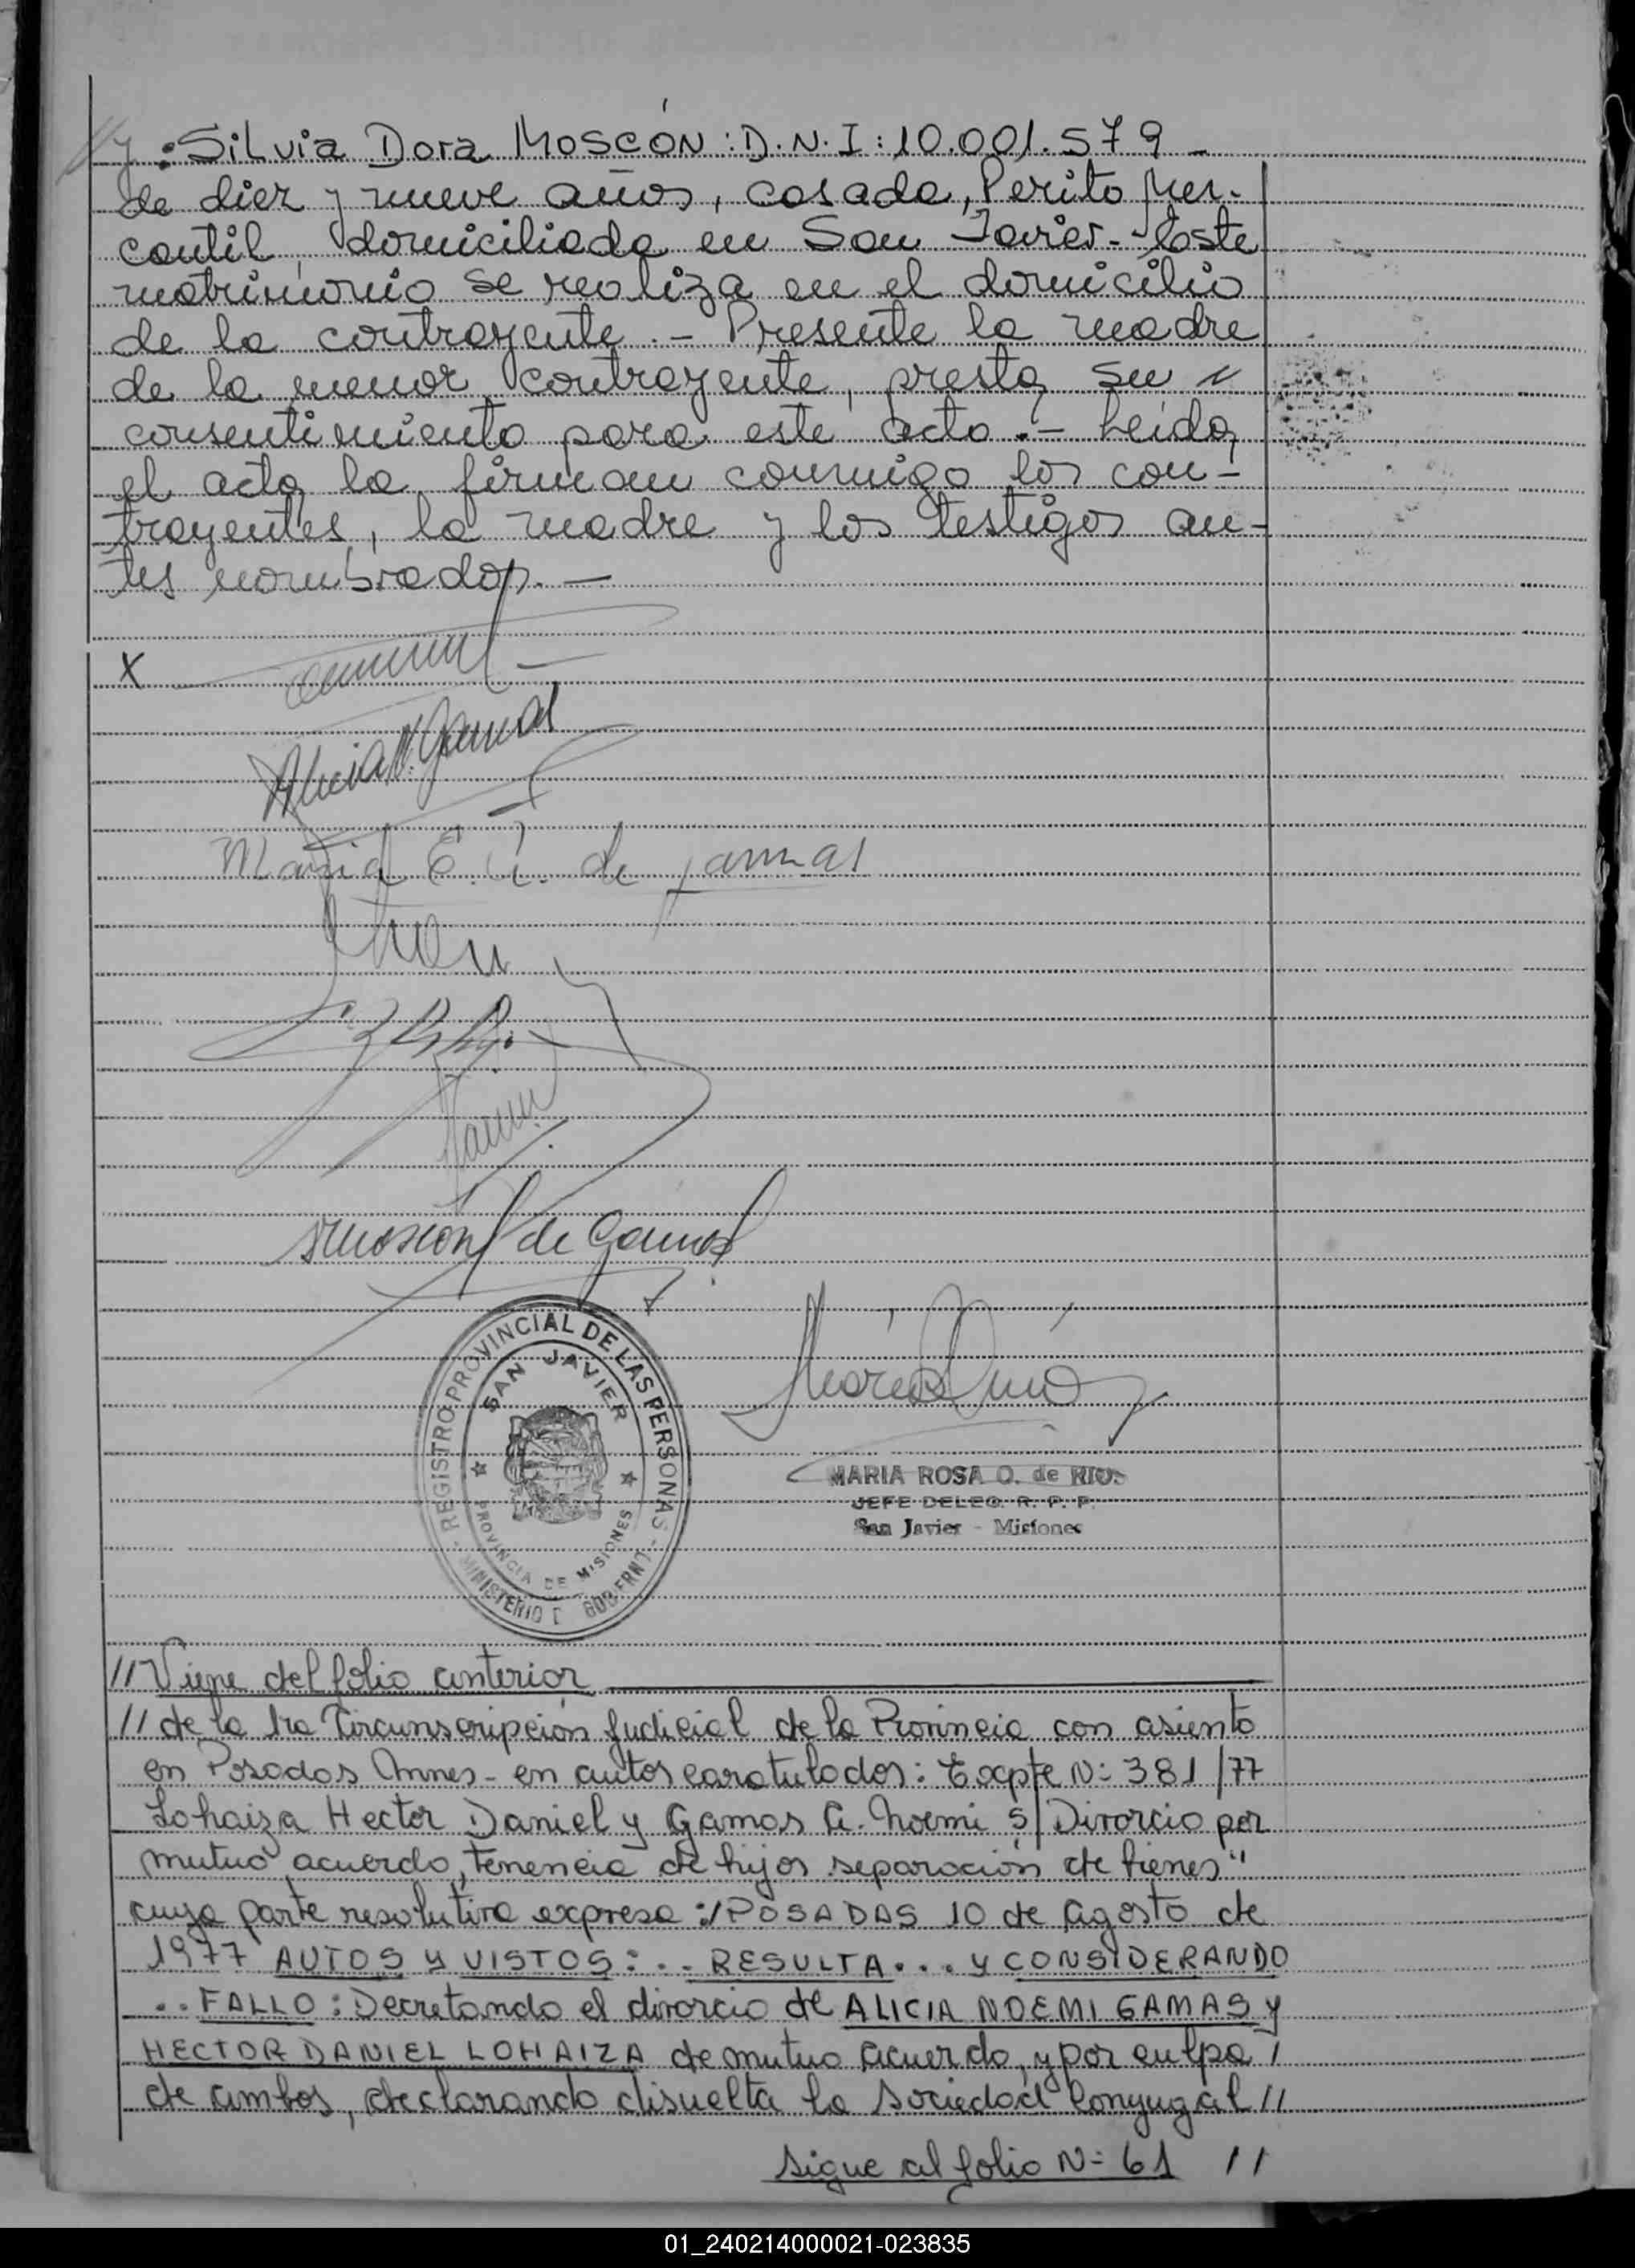 //y: Silvia Dora Moscón: D.N.I: 10.001.579 -
de diez y nueve años, casada, Perito Mer-
cantil, domiciliada en San Javier.- Este
matrimonio se realiza en el domicilio
de la contrayente.- Presente la madre
de la menor contrayente, presta su //
consentimiento para este acto.- Leída
el acta la firman conmigo los con-
trayentes, la madre y los testigos an-
tes nombrados.-
X
Alicia N. Gamas
Maria E. de Gamas
SMoscon de Gamas
REGISTRO PROVINCIAL DE LAS PERSONAS
SAN JAVIER
PROVINCIA DE MISIONES
MINISTERIO D GOBIERNO
MARIA ROSA O. de RIOS
JEFE DELEG. R. P. P.
San Javier - Misiones
//Viene del folio anterior
//de la 1ra Circunscripción Judicial de la Provincia con asiento
en Posadas Mnes- en autos caratulados: Expte N= 381/77
Lohaiza Hector Daniel y Gamas A. Noemi S/Divorcio por
mutuo acuerdo, tenencia de hijos separación de bienes"
cuya parte resolutiva expresa:/POSADAS 10 de Agosto de
1977 AUTOS y VISTOS:.. RESULTA... y CONSIDERANDO
..FALLO: Decretando el divorcio de ALICIA NOEMI GAMAS y
HECTOR DANIEL LOHAIZA de mutuo acuerdo, y por culpa /
de ambos, declarando disuelta la sociedad Conyugal //
Sigue al folio N= 61 //
01_240214000021-023835